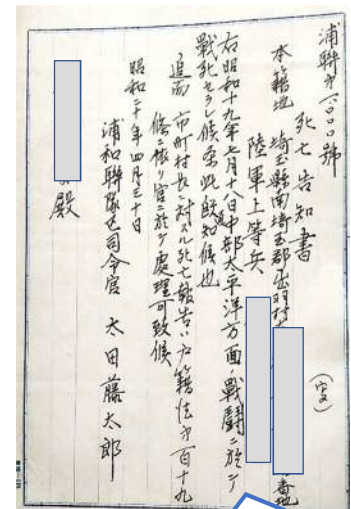 浦聯第一〇〇〇號
死亡告知書
(写)
本籍地 埼玉縣南埼玉郡出羽村 番地
陸軍上等兵
右昭和十九年七月十八日中部太平洋方面ノ戰鬪ニ於テ
戰死セラレ候条此段知候也
追而 市町村長ニ対スル死亡報告ハ戸籍法第百十九
條ニ依リ官ニ於テ處理可致候
昭和二十年四月三十日
浦和聯隊区司令官 太田藤太郎
殿